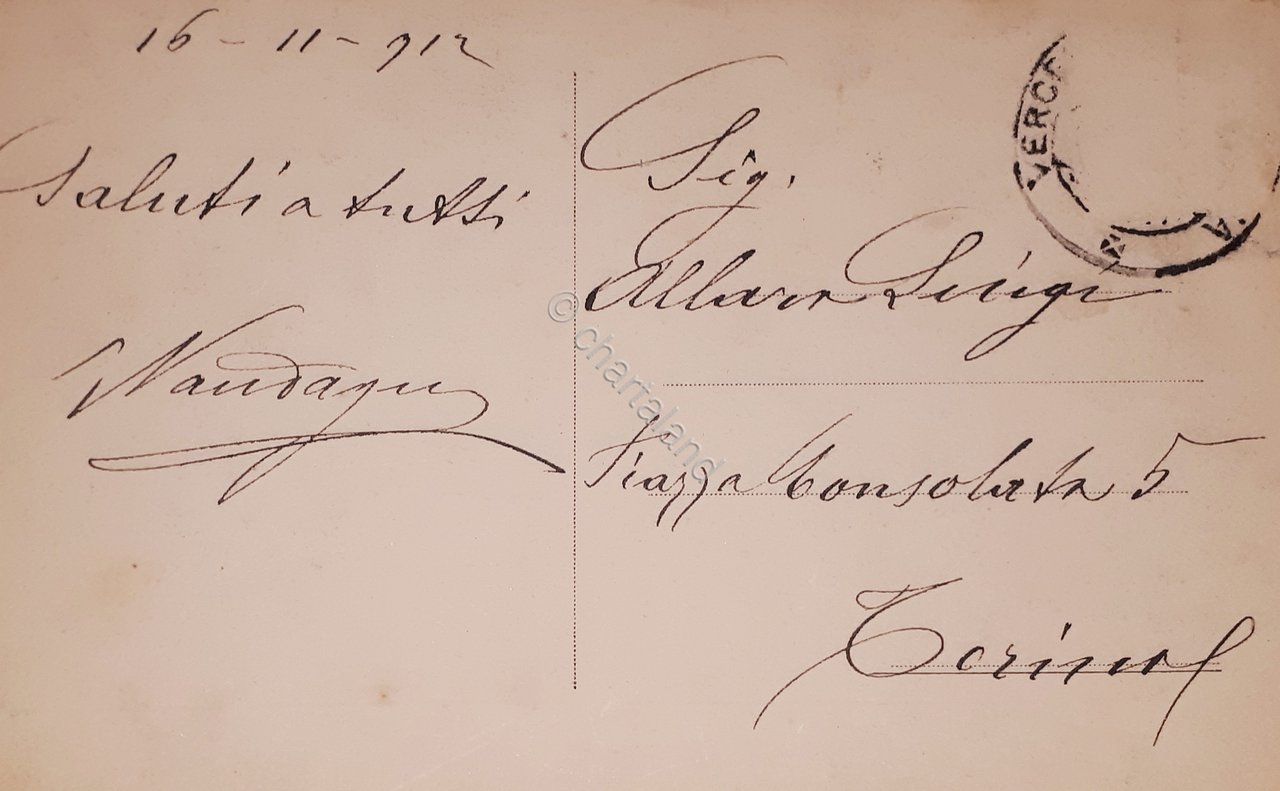 16 - 11 - 912
Saluti a tutti
Sig.
Luigi
Piazza Consolata 5
Torino
VERC
© chartaland